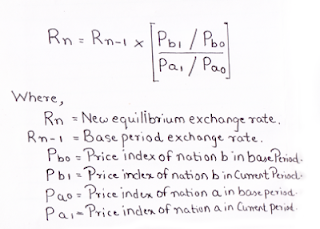 Rn = Rn-1 × [Pb1 / Pb0
Pa1 / Pa0]
Where,
Rn = New equilibrium exchange rate.
Rn-1 = Base period exchange rate.
Pb0 = Price index of nation b in base Period.
Pb1 = Price index of nation b in Current Period.
Pa0 = Price index of nation a in base period.
Pa1 = Price index of nation a in Current period.